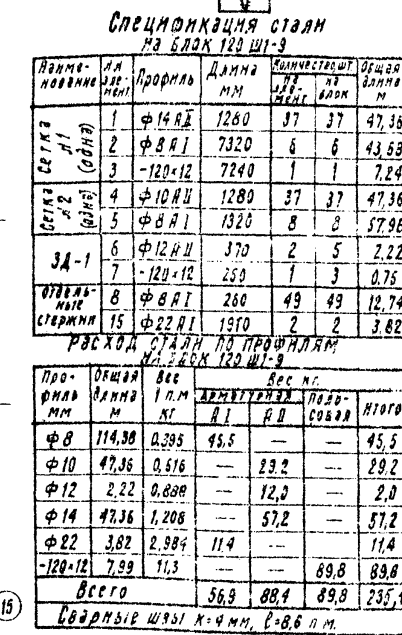 Спецификация стали
на блок 120 Ш1-9
Наиме-нование №№ эле-мент. Профиль Длина мм Количество, шт на эле-мент на блок Общая длина м
Сетка №1 (одна)
1 ф14АII 1280 37 37 47,36
2 ф8АI 7320 6 6
3 -120×12 7240 1 1 7.24
Сетка №2 (одна)
4 ф10АII 1280 37 37 47,36
5 ф8АI 8 8
ЗД-1
6 ф12АII 370 2 5 2,22
7 -120×12 250 1 3 0.75
отдель-ные стержни
8 ф8АI 260 49 49 12,74
15 ф22АI 1910 2 2 3,82
Расход стали по профилям
на блок 120 Ш1-9
Про-филь мм Общая длина м Вес 1 п.м кг Вес кг. Арматурная АI АII Поло-совая Итого
ф8 114,38 0.395 45,5 — — 45,5
ф10 47,36 0,616 — 29.2 — 29,2
ф12 2,22 0,888 — — 2,0
ф14 47,36 1,208 — 57,2 — 57,2
ф22 3,82 2,984 11.4 — — 11,4
-120×12 7,99 11,3 — — 89,8 89,8
Всего 56,9 88,4 89,8 235,1
Сварные швы к=4 мм, ℓ=8,6 п.м.
15